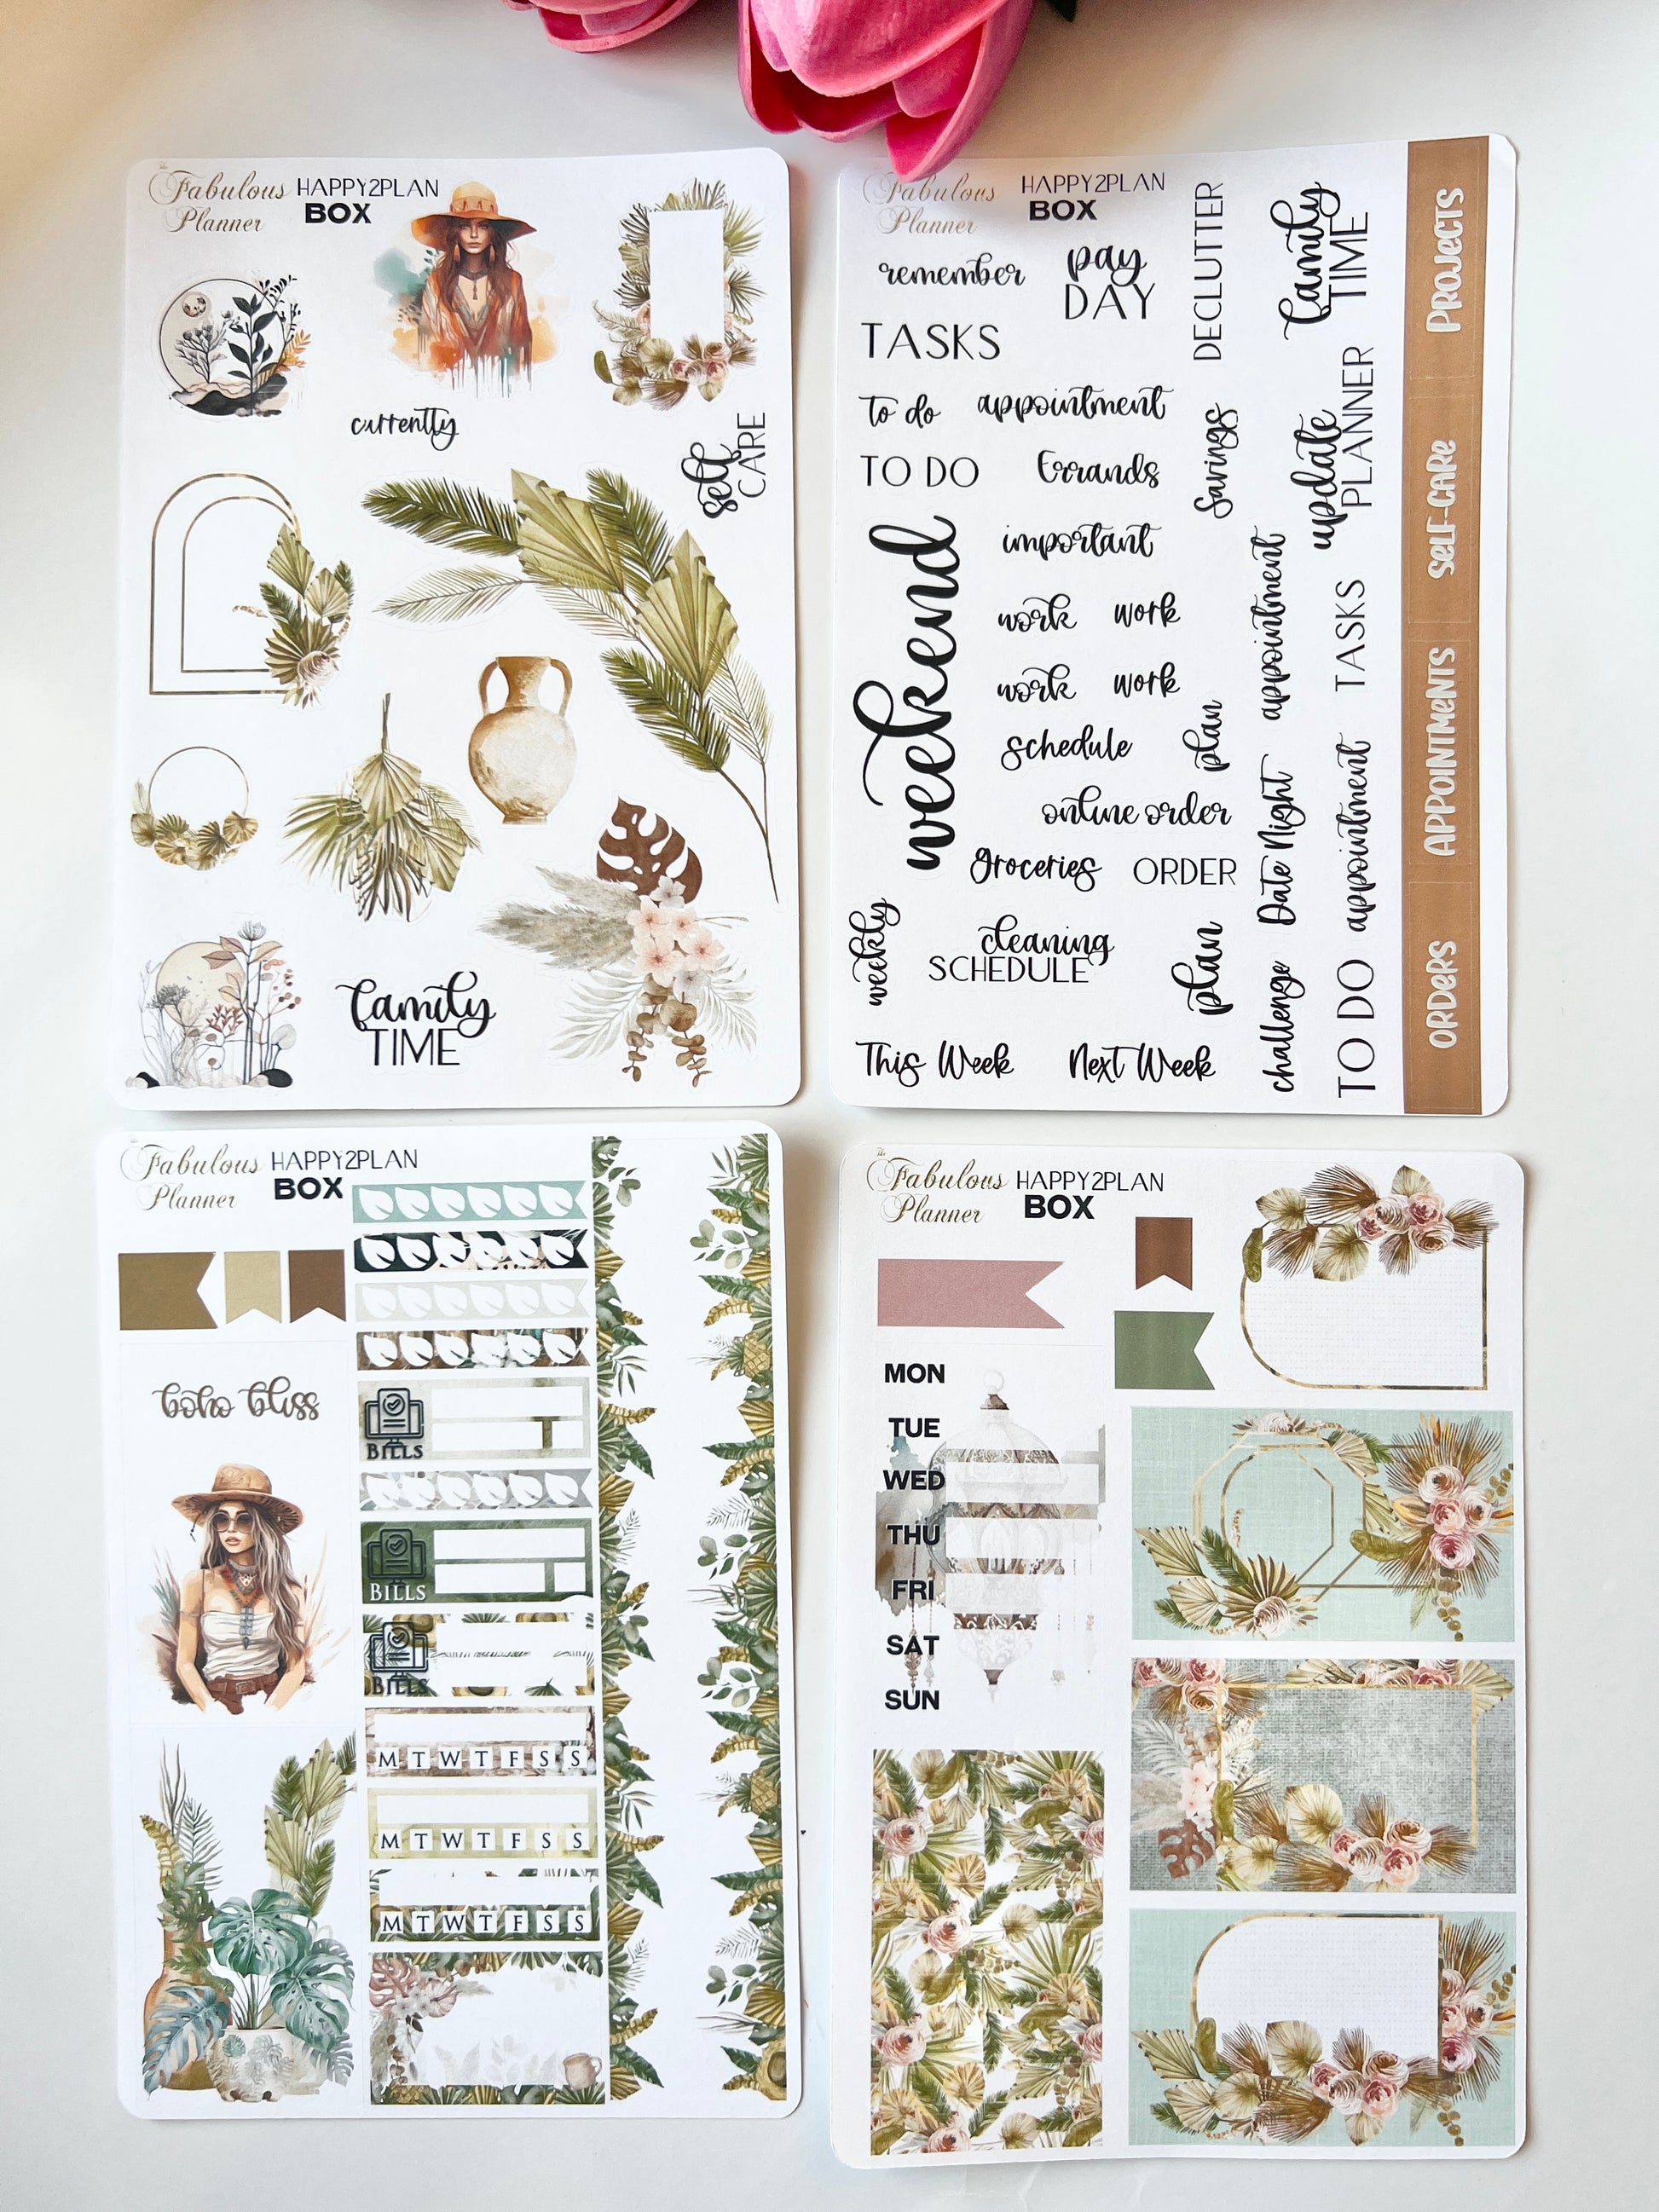 The
Fabulous
Planner
HAPPY2PLAN
BOX
currently
self
CARE
family
TIME
Fabulous
Planner
HAPPY2PLAN
BOX
remember
pay
DAY
DECLUTTER
family
TIME
TASKS
to do
appointment
savings
update
PLANNER
TO DO
Errands
important
weekend
work work
work work
appointment
TASKS
schedule
plan
online order
Date Night
appointment
groceries
ORDER
weekly
cleaning
SCHEDULE
plan
challenge
TO DO
This Week
Next Week
PROJECTS
SELF-CARE
APPOINTMENTS
ORDERS
Fabulous
Planner
HAPPY2PLAN
BOX
boho bliss
BILLS
BILLS
BILLS
M T W T F S S
M T W T F S S
M T W T F S S
The
Fabulous
Planner
HAPPY2PLAN
BOX
MON
TUE
WED
THU
FRI
SAT
SUN